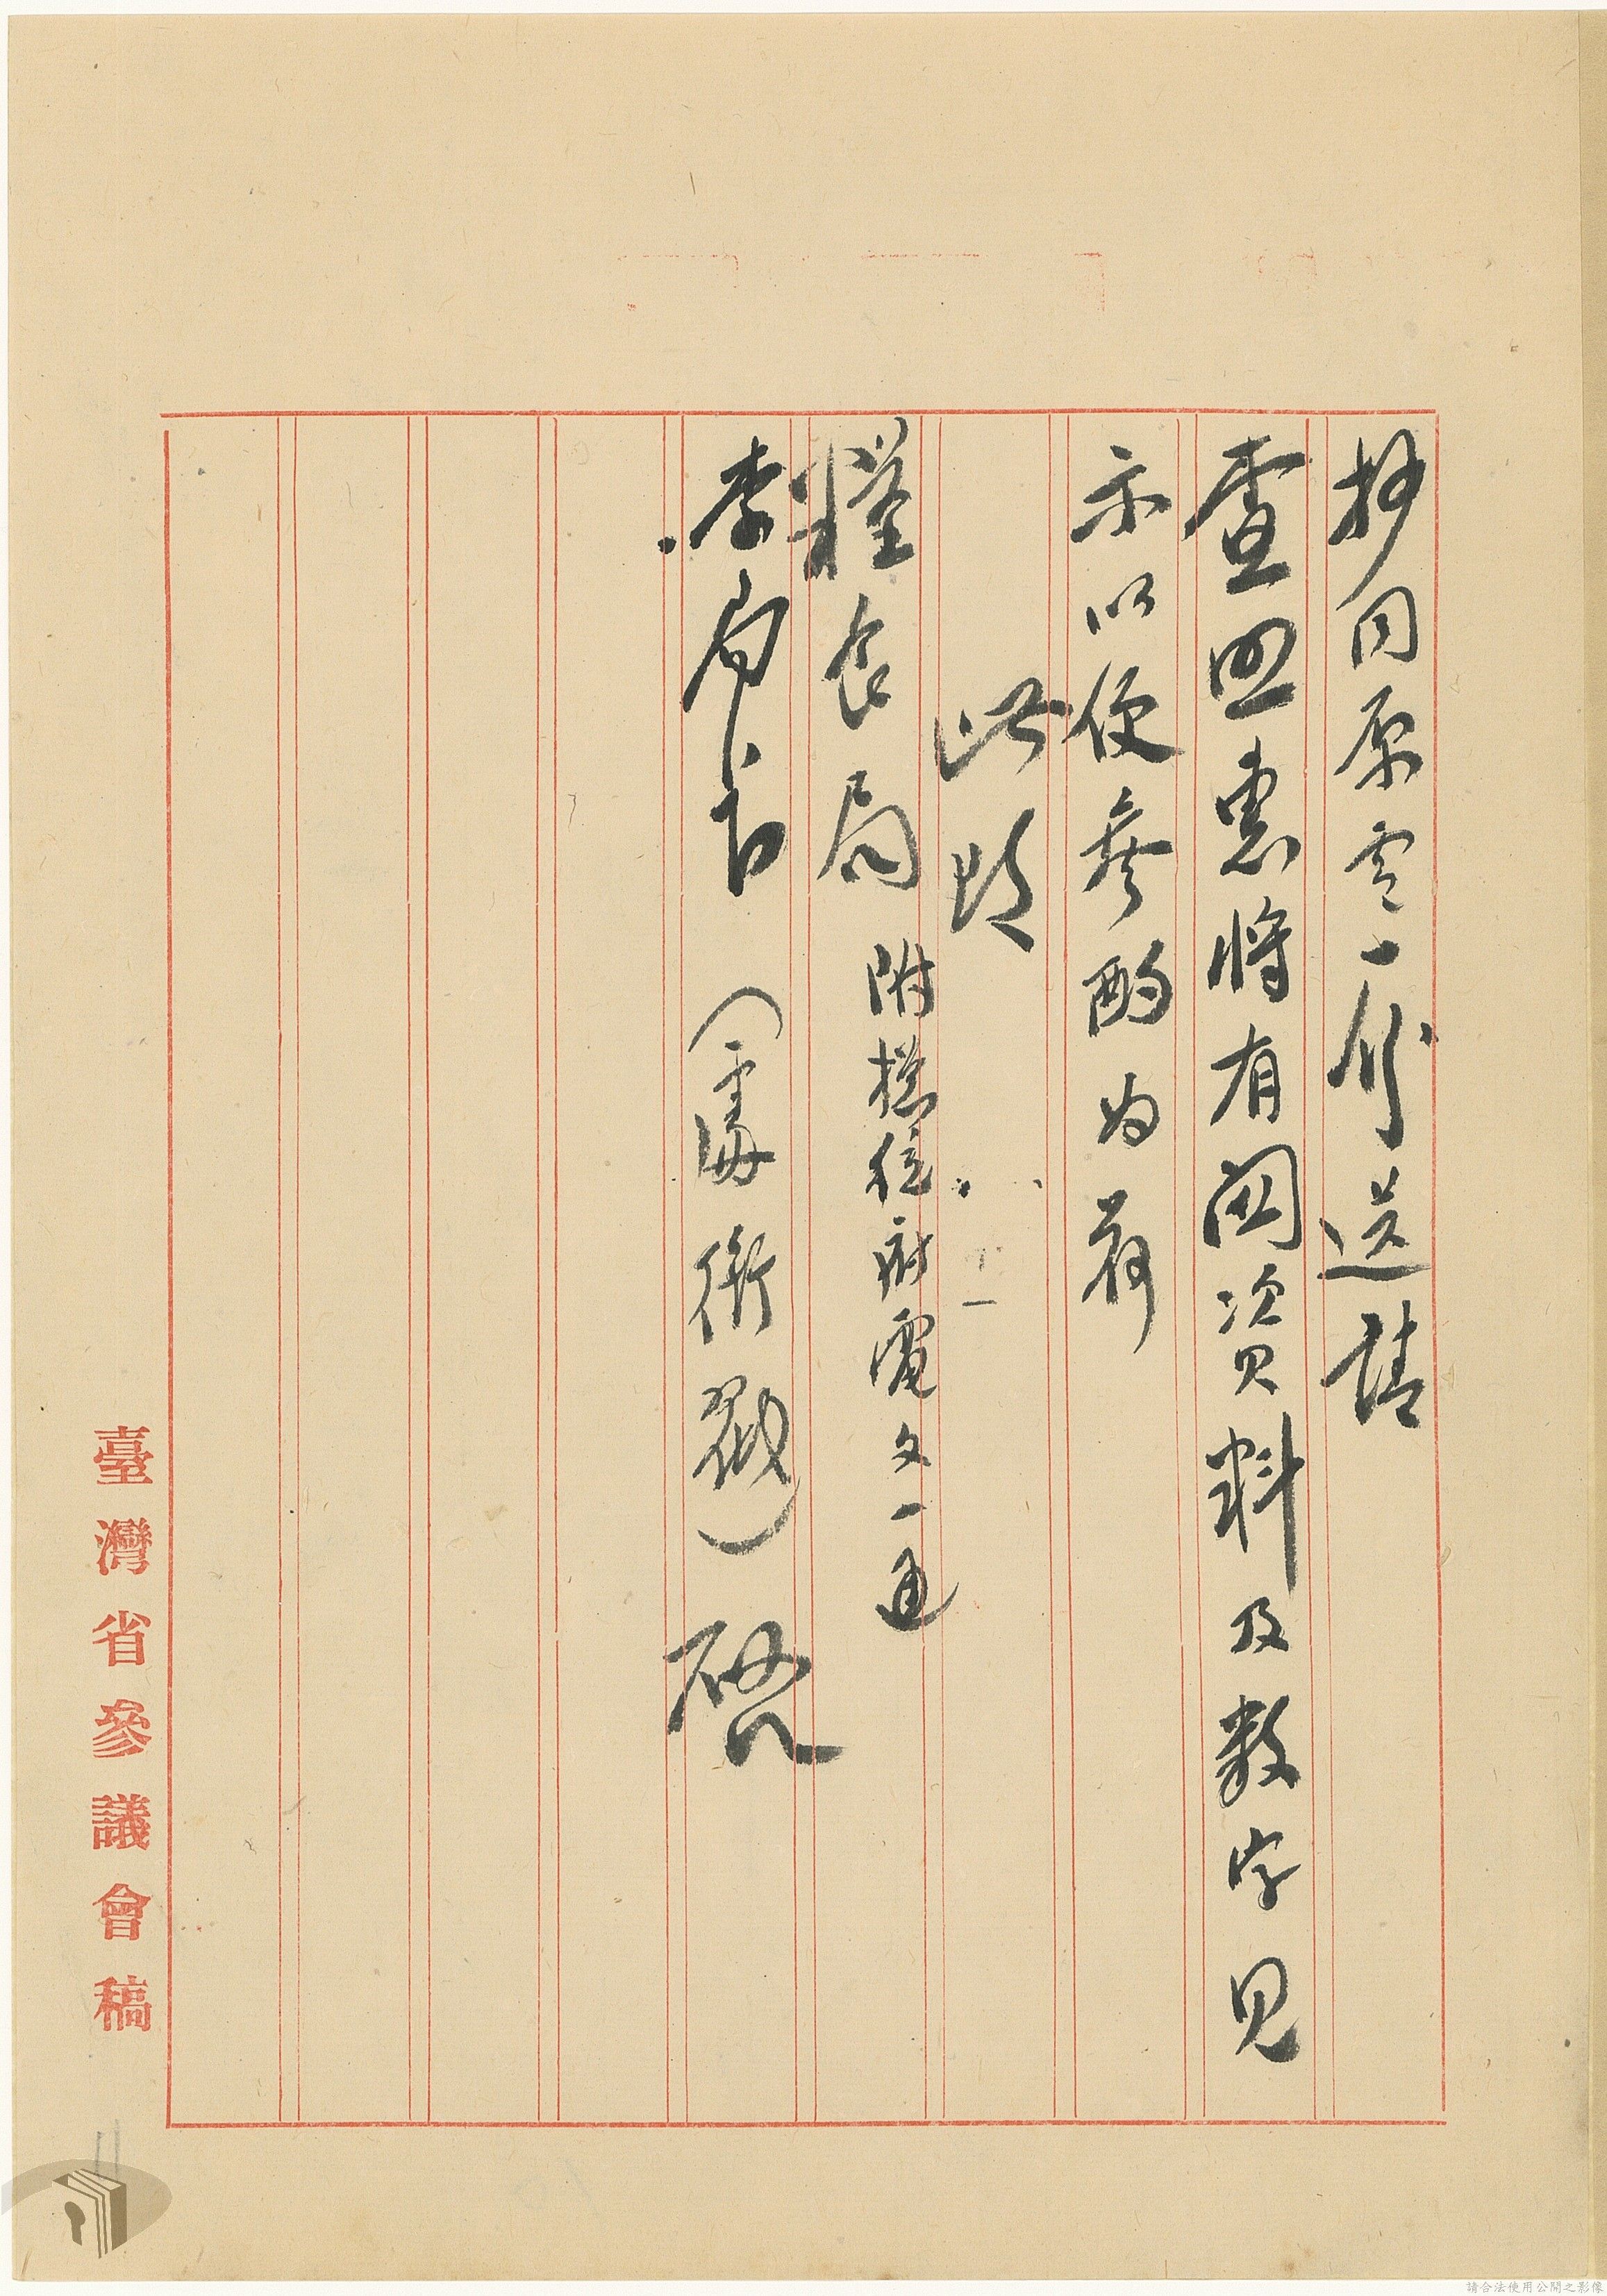 抄同原電一件送請
查照惠將有関資料及数字見
示以便參酌為荷
此致
糧食局
附抄總統府電文一通
李局長
(處銜戳)啓
臺灣省參議會稿
請合法使用公開之影像